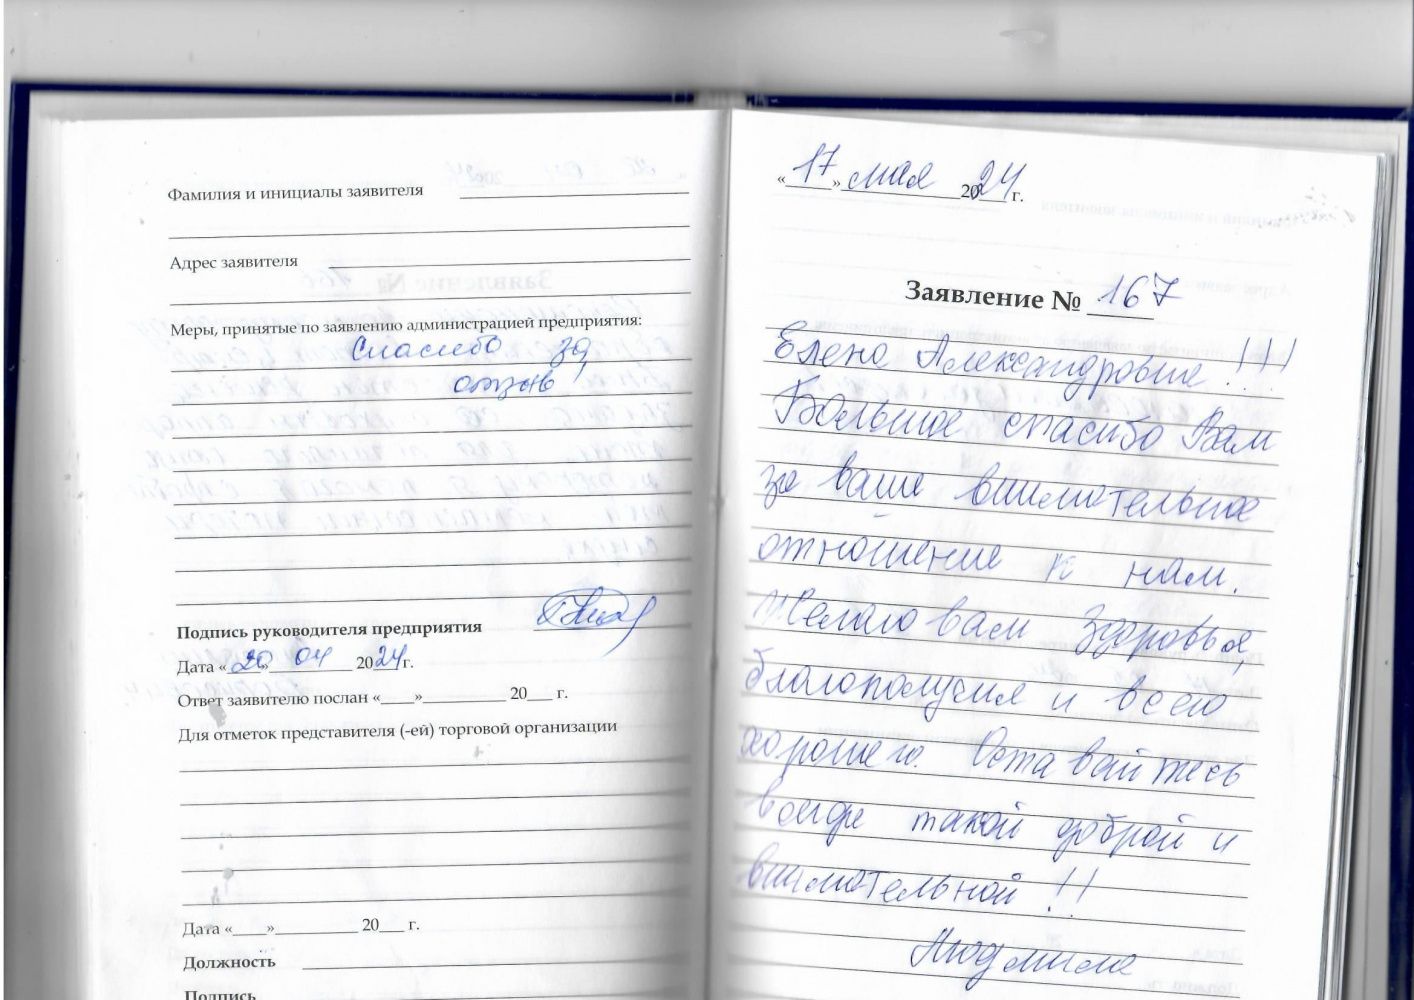 Фамилия и инициалы заявителя
Адрес заявителя
Меры, принятые по заявлению администрацией предприятия:
Спасибо за
отзыв!
Подпись руководителя предприятия
Дата «20» 04 2024г.
Ответ заявителю послан «____»__________ 20___ г.
Для отметок представителя (-ей) торговой организации
Дата «____»__________ 20___ г.
Должность
Подпись
«17» мая 2024 г.
Заявление № 167
Елена Александровне!!!
Большое спасибо Вам
за ваше внимательное
отношение к нам.
Желаю вам Здоровья,
благополучия и всего
хорошего. Оставайтесь
всегда такой доброй и
внимательной!!
Людмила